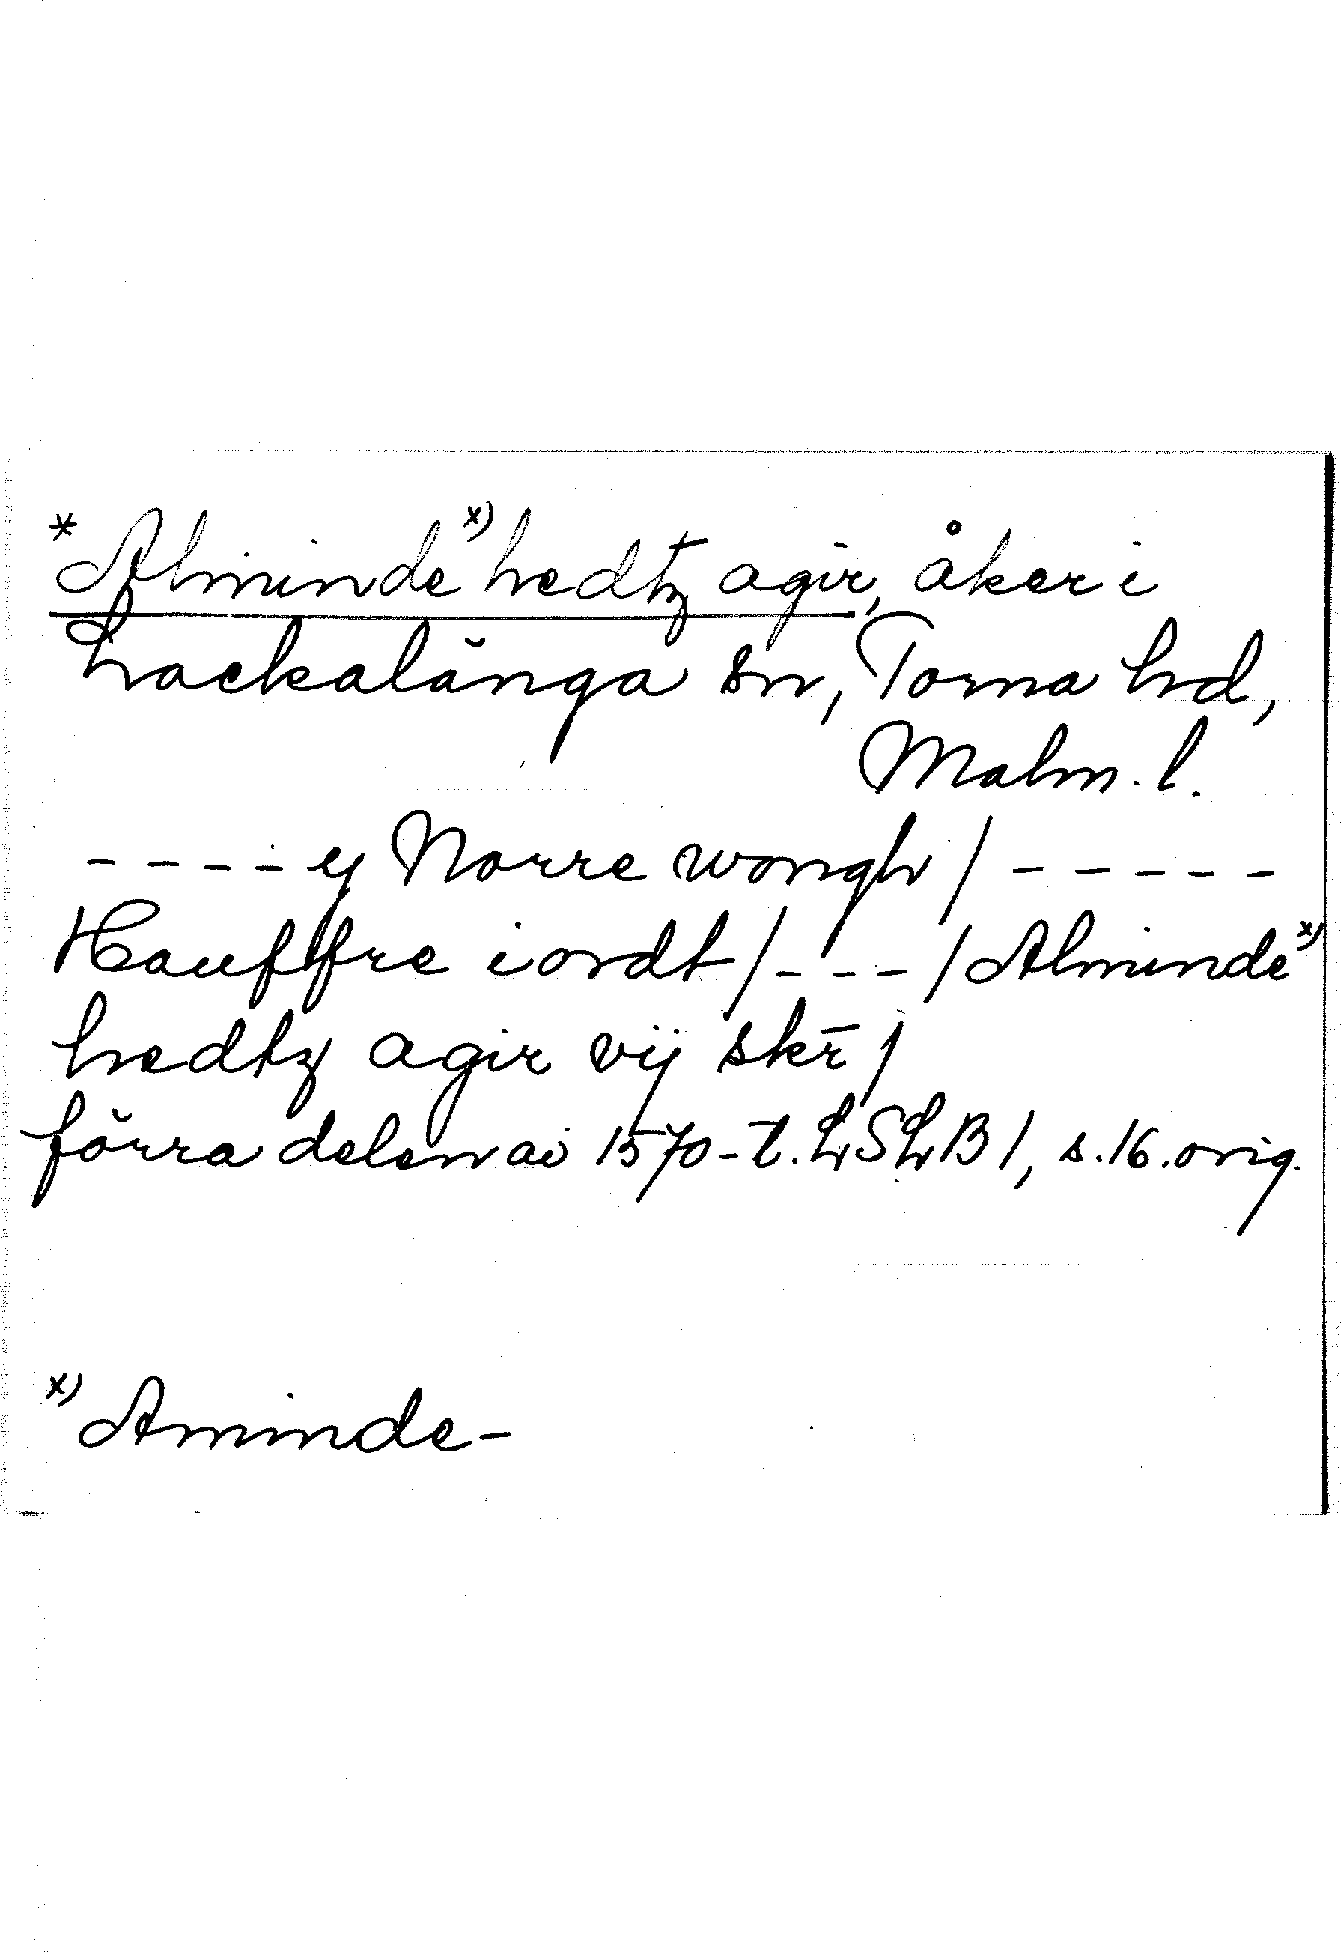 *Alminde x) hedtz agir, åker i
Lackalänga sn, Torna hd,
Malm. l.
- - - - ij Norre wongh / - - - - -
Hauffre iordt / - - - / Alminde x)
hedtz agir vij skr̄ /
förra delen av 1570-t. LSLB 1, s. 16. orig.
x) Aminde-